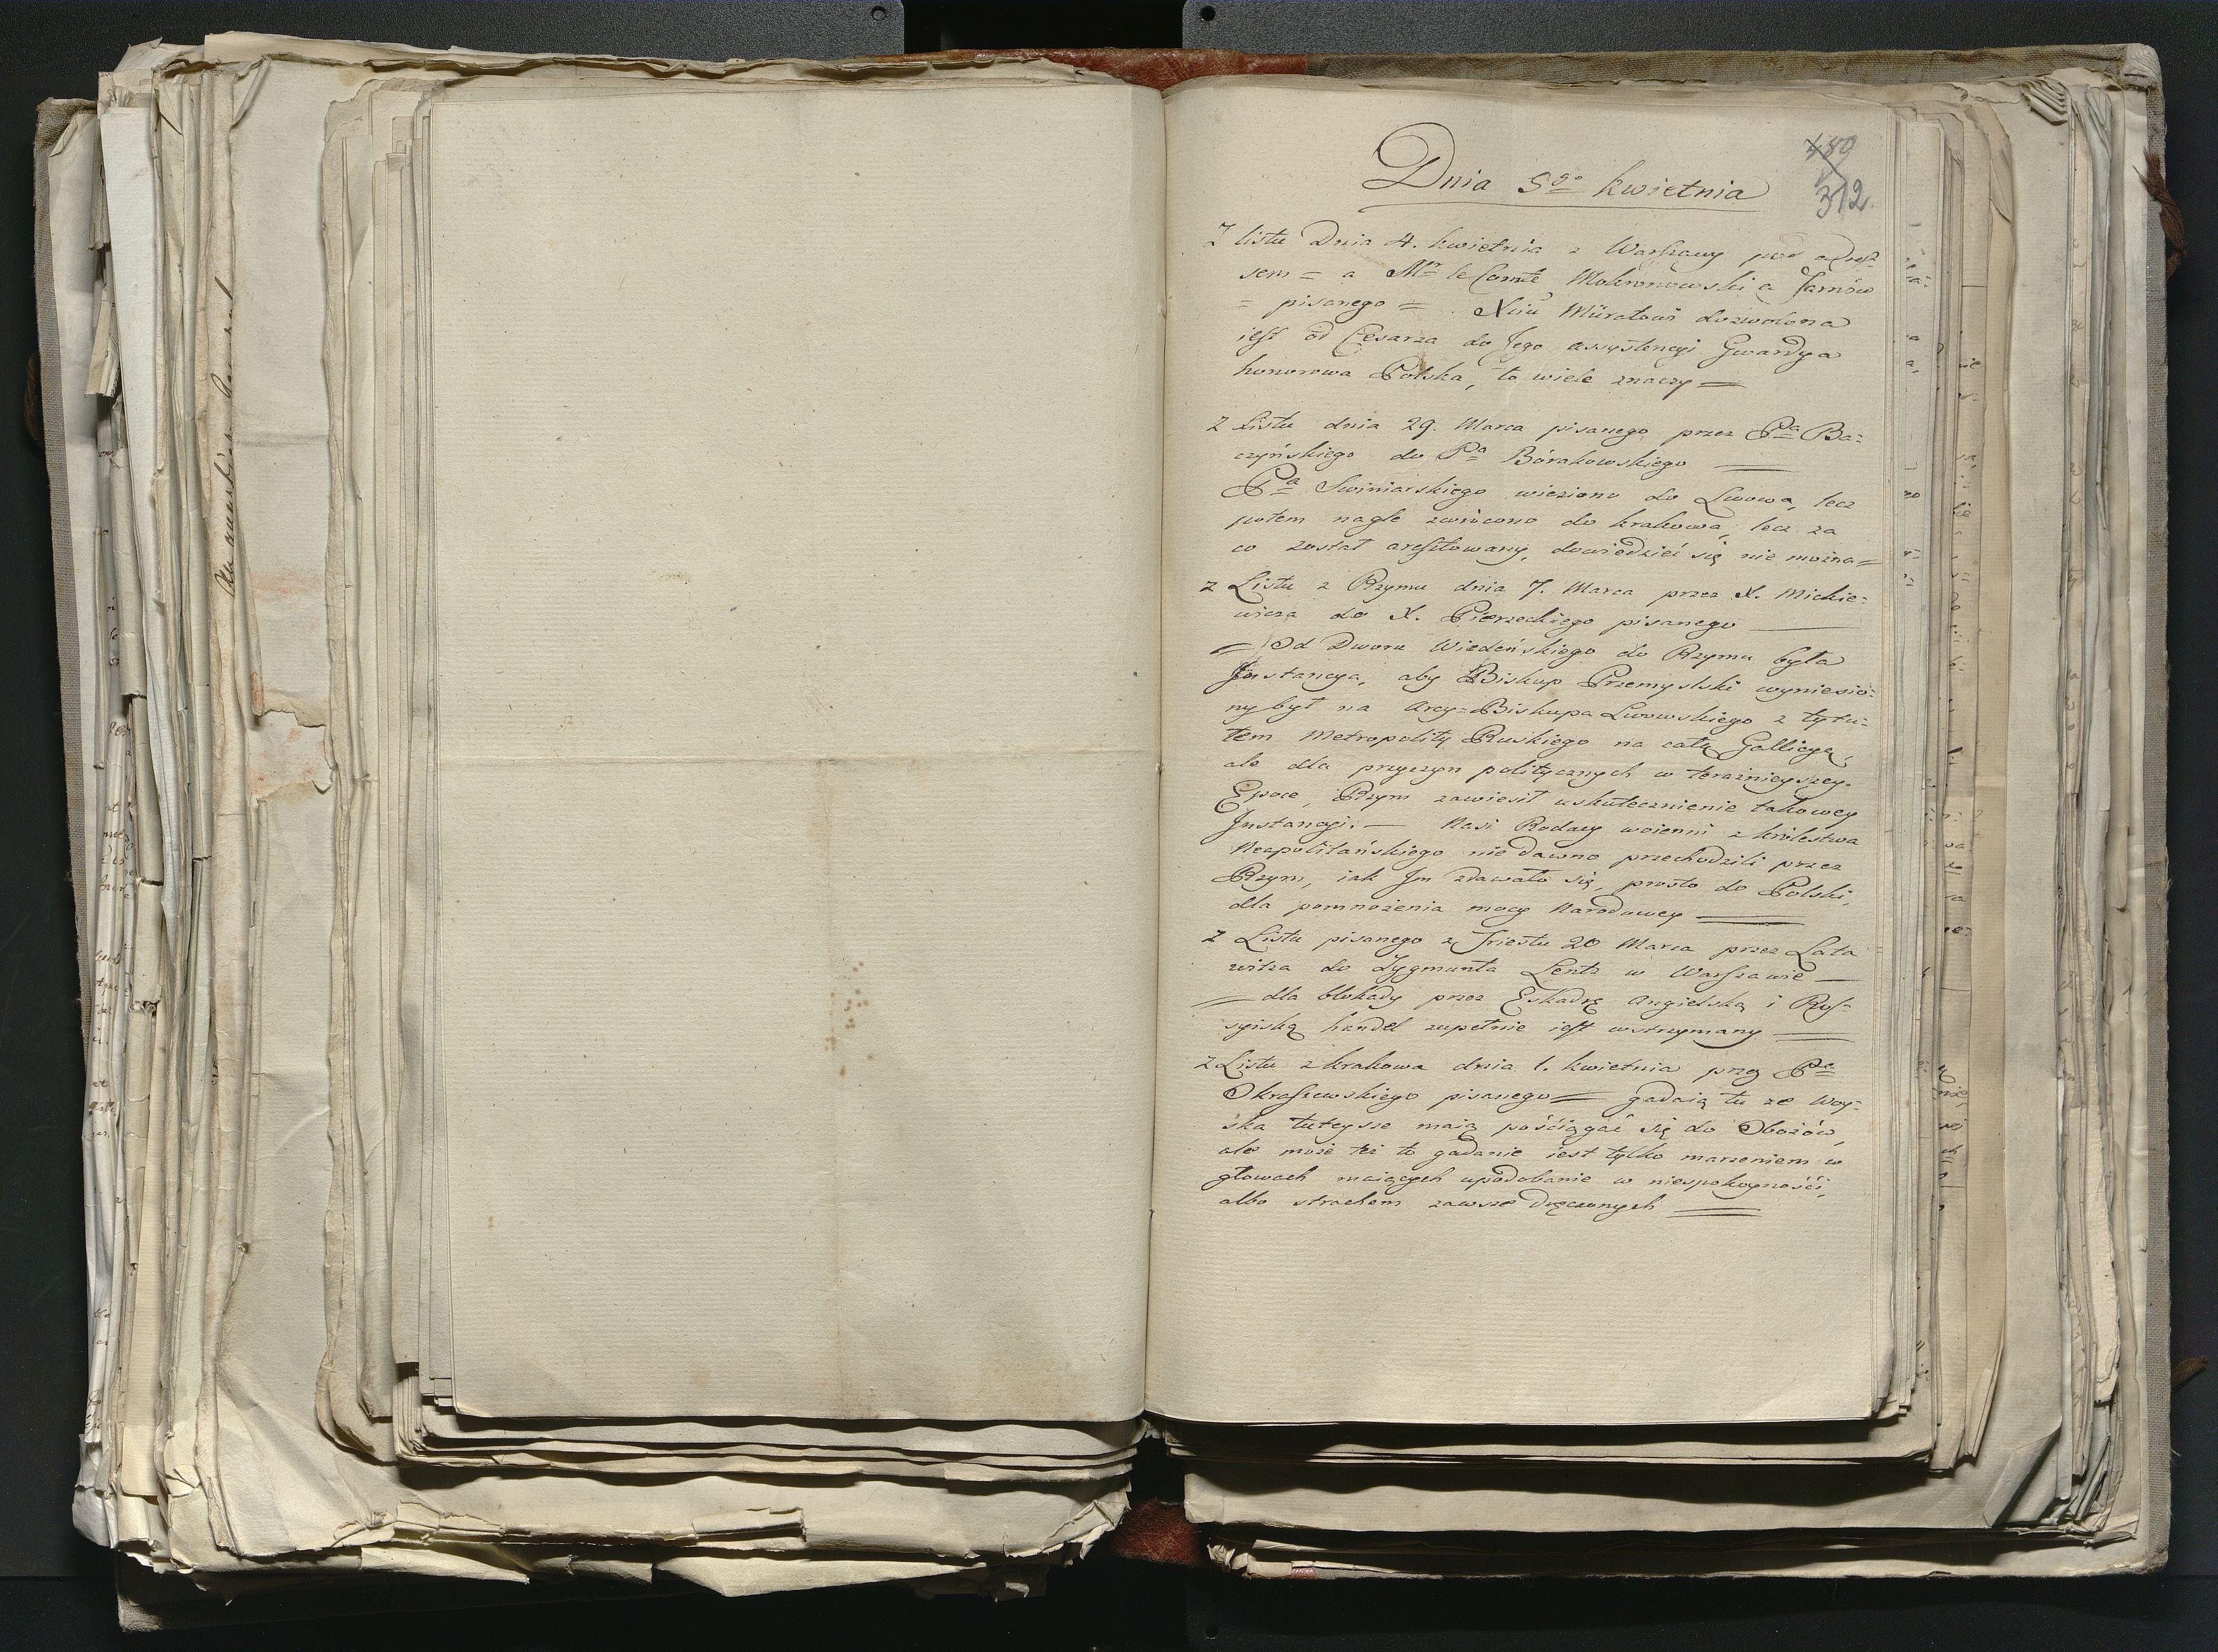 Dnia 5go kwietnia
459
312.
Z listu Dnia 4. kwietnia z Warszawy pod adres-
sem = a Mr le Comte Mokronowski a Jarnów
= pisanego = Xciu Müratowi dozwolona
iest od Cesarza do Jego assystencyi Gwardya
honorowa Polska, to wiele znaczy =
Z Listu dnia 29. Marca pisanego przez Pa Ba=
czyńskiego do Pa Borakowskiego —
Pa Swiniarskiego wieziono do Lwowa, lecz
potem nagle zwrócono do krakowa, lecz za
co został aresztowany, dowiedzieć się nie można=
z Listu z Rzymu dnia 7. Marca przez X. Mickie=
wicza do X. Pierzeckiego pisanego —
= Od Dworu Wiedeńskiego do Rzymu była
Jnstancya, aby Biskup Przemyslski wyniesio=
ny był na Arcy=Biskupa Lwowskiego z tytu=
łem Metropolity Ruskiego na całą Gallicyą,
ale dla przyczyn politycznych w teraźnieyszey
Epoce, Rzym zawiesił uskutecznienie takowey
Jnstancyi. — Nasi Rodacy woienni z królestwa
Neapolitańskiego nie dawno przechodzili przez
Rzym, iak Jm zdawało się, prosto do Polski,
dla pomnożenia mocy Narodowey =
Z Listu pisanego z Triestu 20 Marca przez Lata
wicza do Zygmunta Lentz w Warszawie —
= dla blokady przez Eskadrę Angielską i Ros=
syiską handel zupełnie iest wstrzymany =
Z Listu z krakowa dnia 1. kwietnia przez Pa
Okraszewskiego pisanego = gadaią tu że Woy=
ska tuteysze maią pościągać się do Obozów,
ale może też to gadanie iest tylko marzeniem w
głowach maiących upodobanie w niespokoyności,
albo strachem zawsze dręczonych =